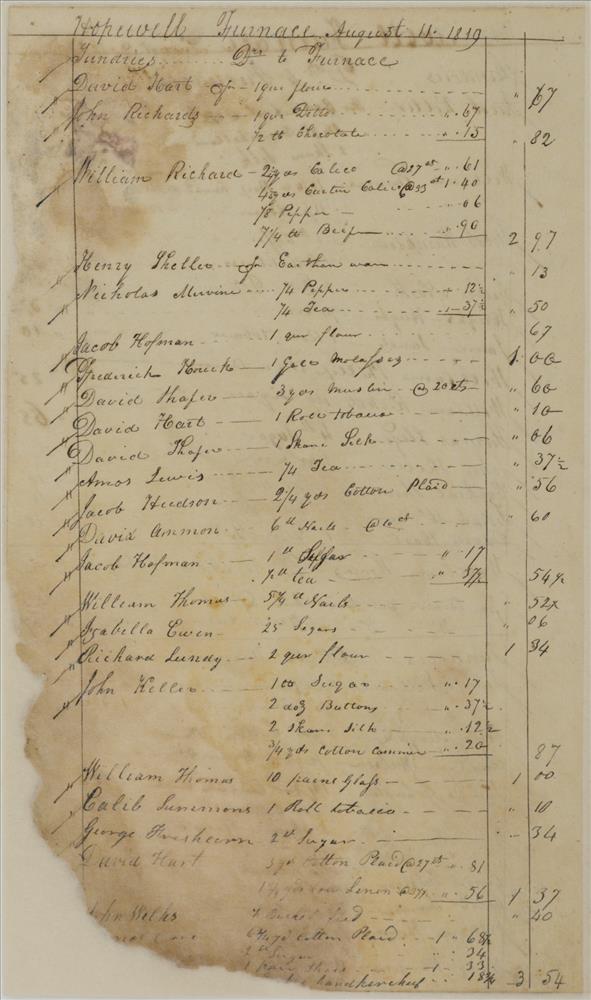 Hopewell Furnace August 11. 1819
Sundries Drs to Furnace
David Hart for 1 qur flour " 67
John Richards 1 qur Ditto ". 67
1/2 lb Chocolate ". 15 " 82
William Richard 2 1/4 yds Calico @ 27 cts ". 61
yds Curtin Calico @ 33 ct 1. 40
Pepper ". 06
7 1/4 lb Beef ". 90 2 97
Henry Sheller for Earthen ware " 13
Nicholas Murvine 1/4 Pepper ". 12 1/2
1/4 Tea ". 37 1/2 " 50
Jacob Hofman 1 qur flour 67
Frederick Houck 1 Gall Molasses 1. 00
David Shafer 3 yds Muslin @ 20 cts " 60
David Hart 1 Roll tobacco " 10
David Shafer 1 Skane Silk " 06
Amos Lewis 1/4 Tea " 37 1/2
Jacob Hudson 2 1/4 yds Cotton Plaid " 56
David Ammon 6 lb Nails @ 10 ct " 60
Jacob Hofman 1 lb Suggar " 17
tea " 37 1/2 54 1/2
William Thomas 5 1/4 lb Nails " 52 1/2
Isabella Cwen 25 Segars " 06
Richard Lundy 2 qur flour 1 34
John Keller 1 lb Sugar ". 17
2 doz Buttons ". 37 1/2
2 Skans Silk ". 12 1/2
3/4 yds Cotton ". 20 87
William Thomas 10 paine Glass 1 00
Calib Simmons 1 Roll tobacco " 10
George 2 lb Sugar " 34
David Hart 3 yds Cotton Plaid @ 27 cts ". 81
Linen @ ". 56 1 37
John Welks " 40
Cotton Plaid 1 " 68
Sugar " 34
1 " 33
handkerchief " 18 3/4 3 54